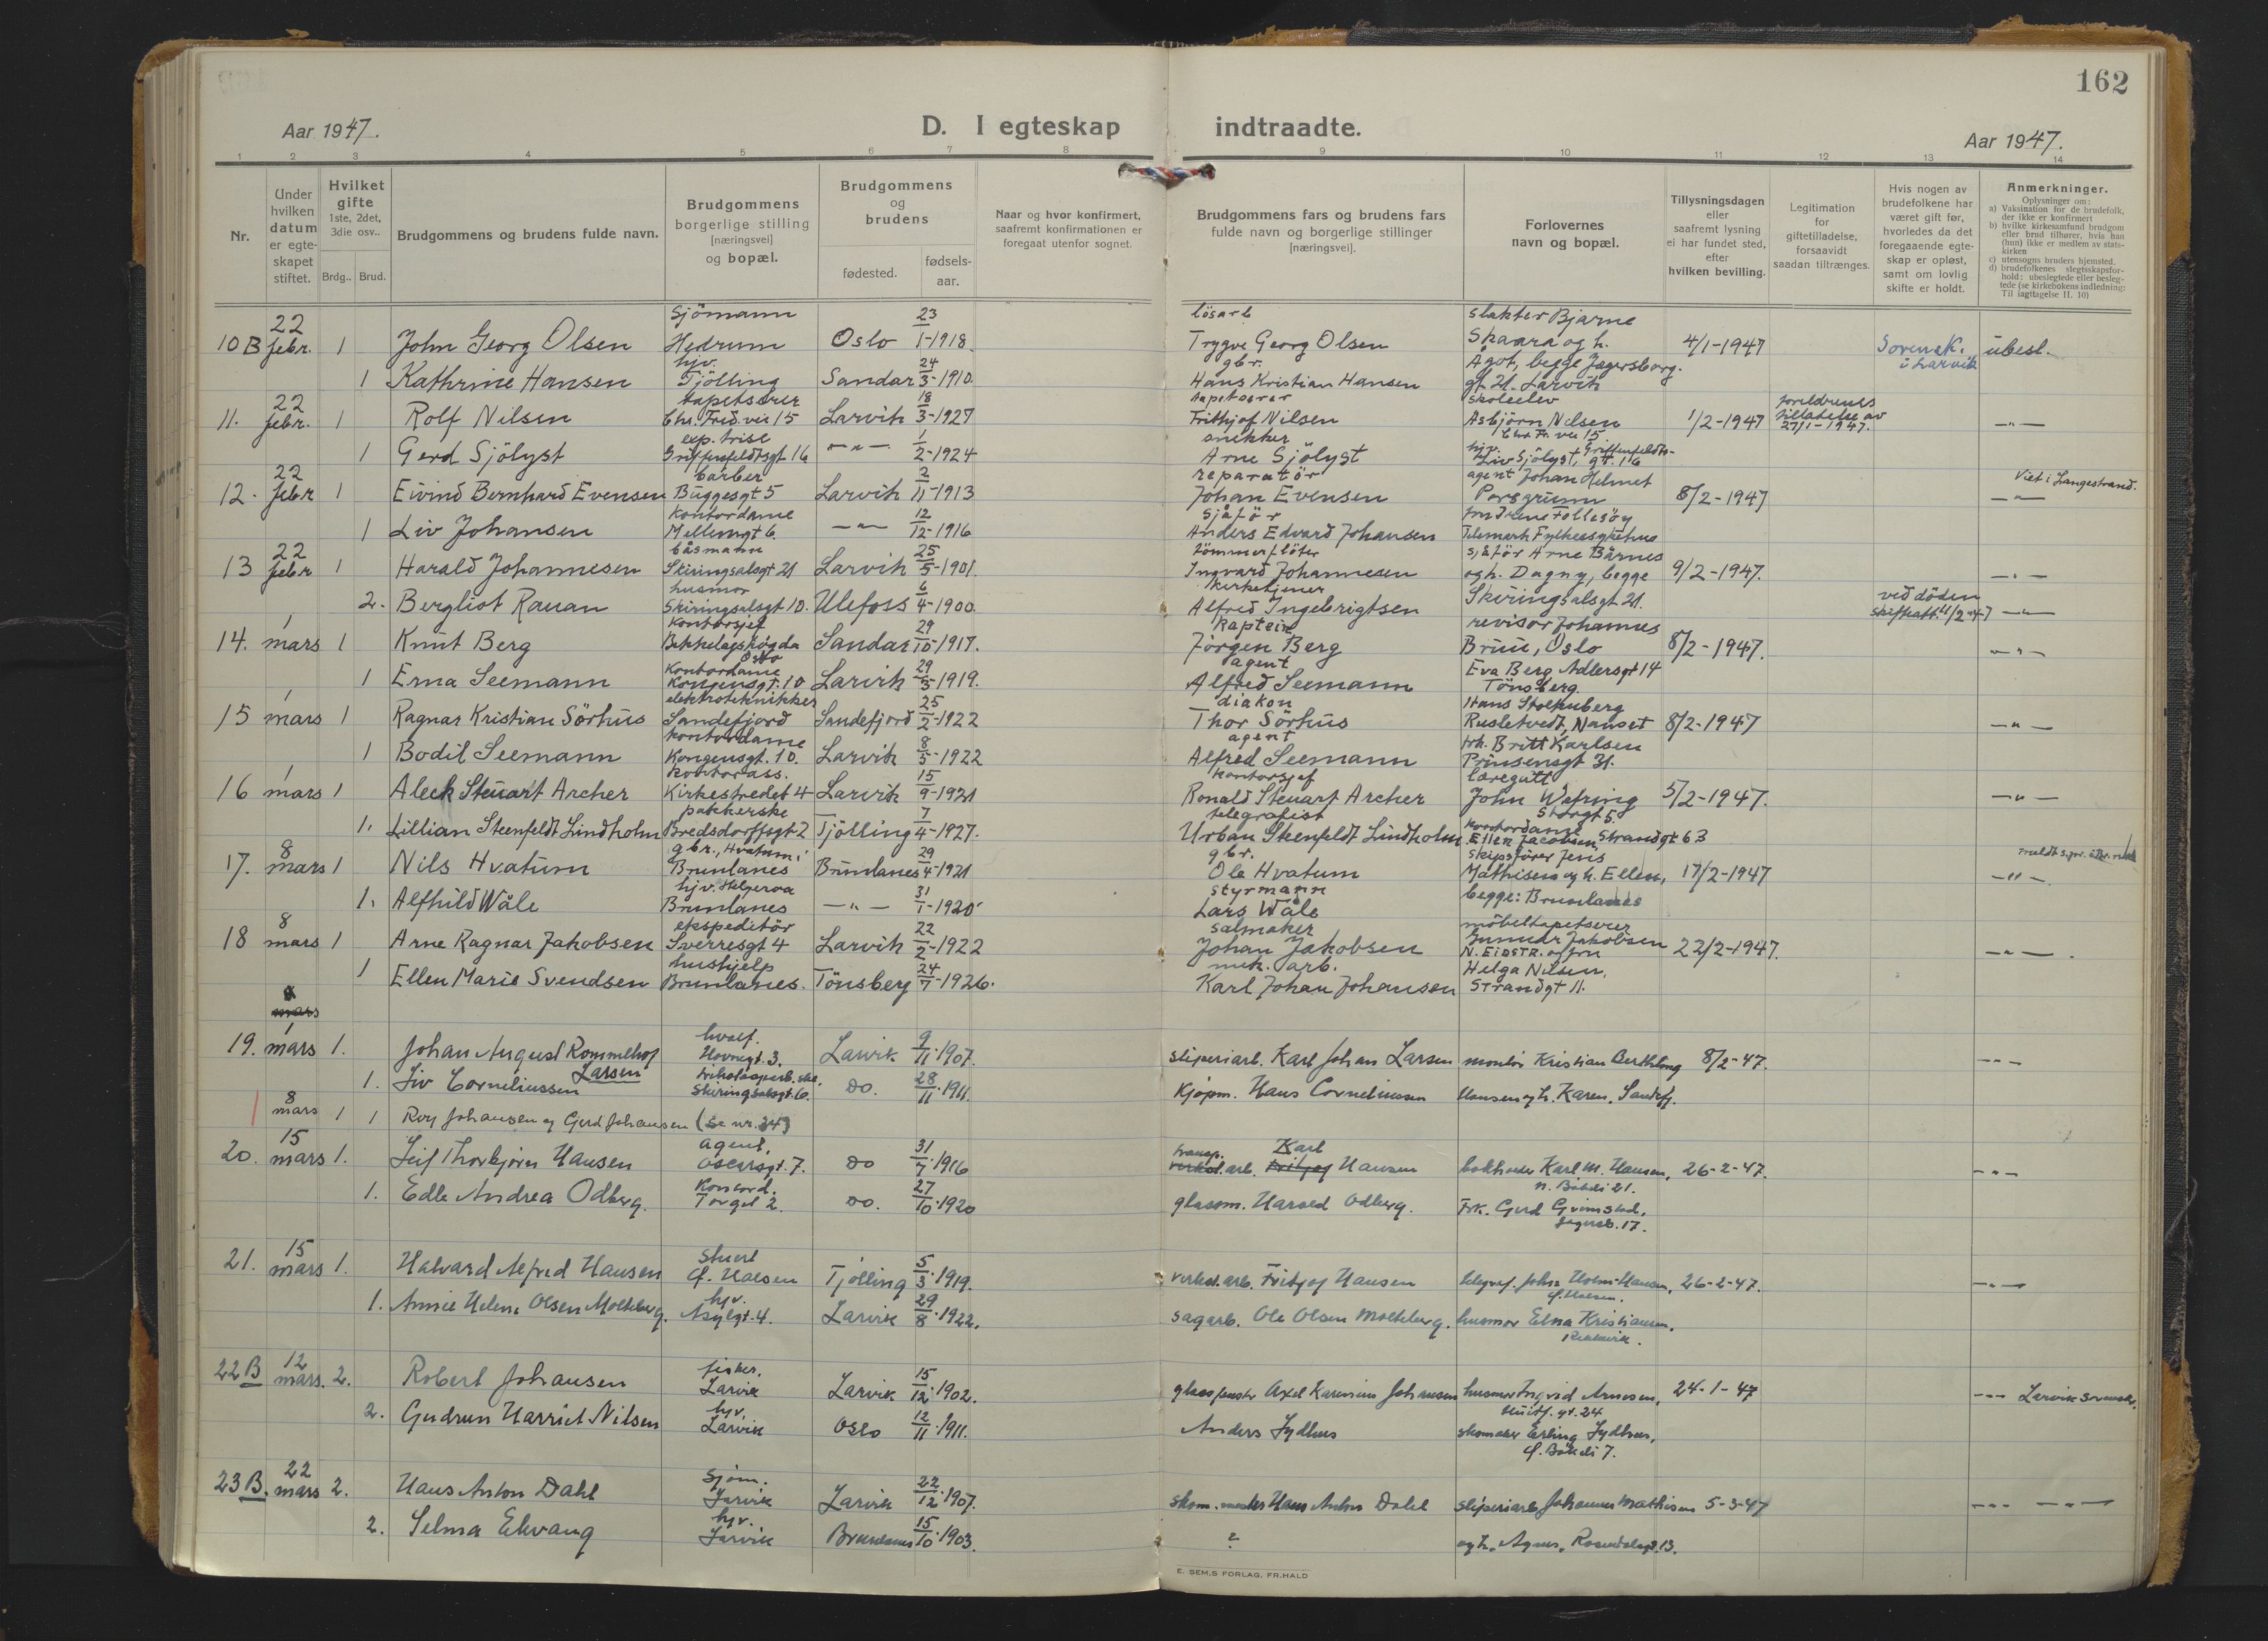 162
Aar 1947.
D. I egteskap indtraadte.
Aar 1947.
1 2 3 4 5 6 7 8 9 10 11 12 13 14
Nr.
Under hvilken datum er egteskapet stiftet.
Hvilket gifte 1ste, 2det, 3die osv..
Brdg.. Brud.
Brudgommens og brudens fulde navn.
Brudgommens borgerlige stilling [næringsvei] og bopæl.
Brudgommens og brudens
fødested.
fødselsaar.
Naar og hvor konfirmert, saafremt konfirmationen er foregaat utenfor sognet.
Brudgommens fars og brudens fars fulde navn og borgerlige stillinger [næringsvei].
Forlovernes navn og bopæl.
Tillysningsdagen eller saafremt lysning ei har fundet sted, efter hvilken bevilling.
Legitimation for giftetilladelse, forsaavidt saadan tiltrænges.
Hvis nogen av brudefolkene har været gift før, hvorledes da det foregaaende egteskap er opløst, samt om lovlig skifte er holdt.
Anmerkninger.
Oplysninger om:
a) Vaksination for de brudefolk, der ikke er konfirmert
b) hvilke kirkesamfund brudgom eller brud tilhører, hvis han (hun) ikke er medlem av statskirken
c) utensogns bruders hjemsted.
d) brudefolkenes slegtsskapsforhold: ubeslegtede eller beslegtede (se kirkebokens indledning: Til iagttagelse II. 10)
10 B 22 febr. 1 John Georg Olsen Sjömann Hedrum Oslo 23/1-1918. lösarb Trygve Georg Olsen slakter Bjarne Skaara og h. 4/1-1947 Sorensk. i Larvik ubesl.
1 Kathrine Hansen hjv. Tjölling Sandar 24/3-1910. gbr. Hans Kristian Hansen Agot, begge Jegersborg. gt. 21. Larvik
11. 22 febr. 1 Rolf Nilsen tapetserer Chr. Fred. vei 15 Larvik 18/3-1927 tapetserer Frithjof Nilsen skoleelev Asbjörn Nilsen Chr. Fr. vei 15. 1/2-1947 foreldrenes tillatelse av 27/1-1947. -"-
1 Gerd Sjölyst exp. trise Griffenfeldtsgt 16 -"- 1/2-1924 snekker Arne Sjölyst hjv. Liv Sjölyst, Griffenfeldts- gt. 16
12. 22 febr 1 Eivind Bernhard Evensen barber Buggesgt 5 Larvik 2/11-1913 reparatör Johan Evensen agent Johan Helmet Porsgrunn 8/2-1947 Viet i Langestrand. -"-
1 Liv Johansen kontordame Mellomgt 6. -"- 12/12-1916 sjåför Anders Edvard Johansen Telemark Fylkessykehus
13 22 febr 1 Harald Johannesen båsmann Skiringsalsgt 21 Larvik 25/5-1901. tömmerflöter Ingvard Johannesen sjåför Arne Bårnes og h. Dagny, begge 9/2-1947. -"-
2. Bergliot Rauan husmor Skiringsalsgt 10. Ulefoss 6/4-1900 kirketjener Alfred Ingebrigtsen Skiringsalsgt 21. ved döden skifteatt. 11/2-47 -"-
14. 1 mars 1 Knut Berg kontorsjef Bekkelagshögda Oslo Sandar 29/10-1917. kaptein Jörgen Berg revisor Johannes Bruu, Oslo 8/2-1947. -"-
1 Erna Seemann kontordame Kongensgt. 10 Larvik 29/3-1919. agent Alfred Seemann Eva Berg Adlersgt 14 Tönsberg
15 1 mars 1 Ragnar Kristian Sörhus elektrotekniker Sandefjord Sandefjord 25/2-1922 diakon Thor Sörhus Hans Stoltenberg Rusletvedt, Nanset 8/2-1947 -"-
1 Bodil Seemann kontordame Kongensgt. 10. Larvik 8/5-1922 agent Alfred Seemann frk. Britt Karlsen Prinsensgt 31.
16 1 mars 1 Aleck Steuart Archer kontorass. Kirkestredet 4 Larvik 15/9-1921 kontorsjef Ronald Steuart Archer læregutt John Wefring Storgt 5. 5/2-1947. -"-
1. Lillian Steenfeldt Lindholm pakkerske Bredsdorffsgt 2 Tjölling 7/4-1927. telegrafist Urban Steenfeldt Lindholm kontordame Ellen Jacobsen, Strandgt 63
17. 8 mars 1 Nils Hvatum gbr., Hvatum i Brunlanes Brunlanes 29/4-1921 gbr. Ole Hvatum skipsförer Jens Mathisen og h. Ellen, 17/2-1947 -"-
1. Alfhild Wåle hjv. Helgeroa Brunlanes -"- 31/1-1920 styrmann Lars Wåle begge: Brunlanes
18 8 mars 1 Arne Ragnar Jakobsen ekspeditör Sverresgt 4 Larvik 22/2-1922 salmaker Johan Jakobsen möbeltapetserer Gunnar Jakobsen N. Eidstr. og fru 22/2-1947. -"-
1 Ellen Marie Svendsen hushjelp Brunlanes. Tönsberg 24/7-1926. mek. arb. Karl Johan Johansen Helga Nilsen, Strandgt 11.
mars
19. 1 mars 1. Johan August Rommelhof Larsen hvalf. Hovnegt. 3. Larvik 9/11-1907. sliperiarb. Karl Johan Larsen montör Kristian Berthling 8/2-47. -"-
1. Liv Corneliussen Skiringsalsgt. 10. Do. 28/11-1911. Kjöpm. Hans Corneliussen Hansen og h. Karen, Sandefj.
8 mars 1 1 Roy Johansen og Gerd Johansen (se nr. 34)
20. 15 mars 1. Leif Thorbjörn Hansen agent, Oscarsgt. 7. Do 31/7-1916 transp. arb. Karl Hansen bokholder Karl M. Hansen, n. Bökeli 21. 26-2-47. -"-
1. Edle Andrea Odberg. Kontord. Torget 2. Do. 27/10-1920 glassm. Harald Odberg. Frk. Gerd Grimstad, Jegersb. 17.
21. 15 mars 1. Halvard Alfred Hansen Stuert Ö. Halsen Tjölling 5/3-1919. verkst. arb. Fritjof Hansen telegraf. John Holm-Hansen, Ö. Halsen. 26-2-47. -"-
1. Annie Helene Olsen Molteberg. hjv. Asylgt. 4. Larvik 29/8-1922. sagarb. Ole Olsen Molteberg. husmor Edna Kristiansen, Rekkevik.
22 B 12 mars. 2. Robert Johansen fisker, Larvik Larvik 15/12-1902. Axel Karinius Johansen husmor Ingvid Arnesen, Huitf. gt. 24 24-1-47 -"- Larvik Sorensk.
2. Gudrun Harriet Nilsen hjv. Larvik Oslo 12/11-1911. Anders Lydhus skomaker Erling Lydhus, Ö. Bökeli 7.
23 B. 22 mars 2. Hans Anton Dahl Sjöm. Larvik Larvik 22/12-1907. skom. mester Hans Anton Dahl sliperiarb. Johannes Mathisen 5-3-47 -"- -"-
2. Selma Ekvang hjv. Larvik Brunlanes 15/10-1903. ? og h. Agnes, Rosendalsgt. 13.
E. SEM,S FORLAG, FR.HALD